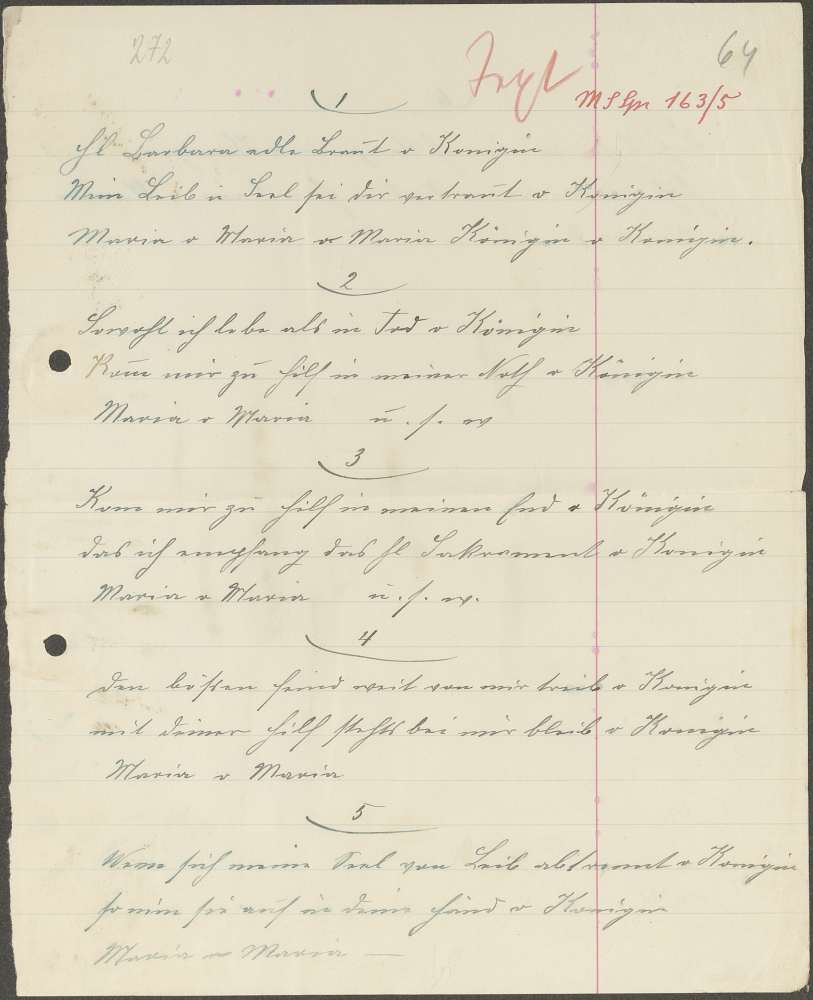 272
64
Text
MS Gr 163/5
1
Hl Barbara edle Braut o Konigin
Mein Leib u Seel sei dir vertraut o Konigin
Maria o Maria o Maria Königin o Konigin.
2
Sowohl ich lebe als in Tod o Königin
Kom̄ mir zu Hilf in meiner Noth o Königin
Maria o Maria u. s. w
3
Kom mir zu Hilf in meinen End o Königin
das ich empfang das hl Sakrament o Konigin
Maria o Maria u. s. w.
4
Den bössen feind weit von mir treib o Konigin
mit deiner Hilf stehts bei mir bleib o Konigin
Maria o Maria
5
Wenn sich meine Seel von Leib abtrennt o Konigin
so nim sie auf in deine Händ o Konigin
Maria o Maria —